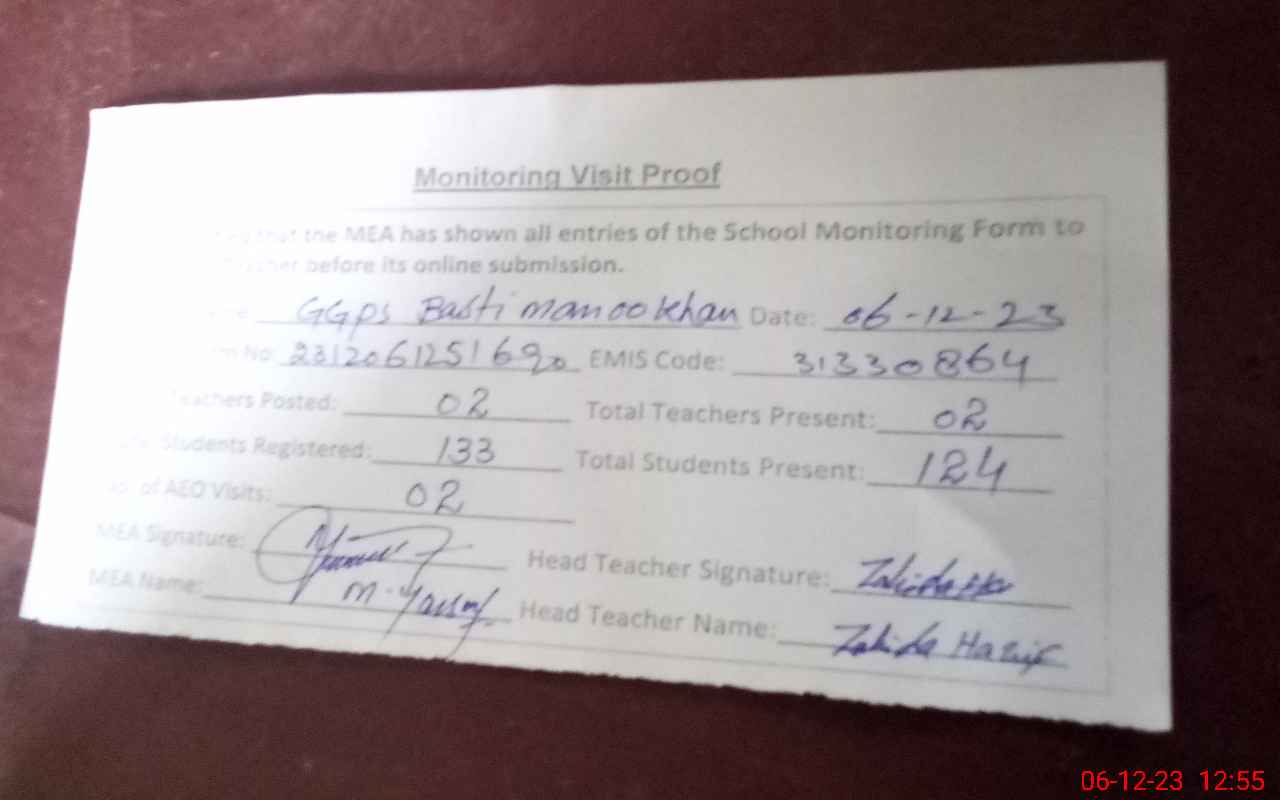 Monitoring Visit Proof
that the MEA has shown all entries of the School Monitoring Form to
before its online submission.
GGPS Basti manoo khan Date: 06-12-23
No: 2312061251690 EMIS Code: 31330864
Teachers Posted: 02 Total Teachers Present: 02
Students Registered: 133 Total Students Present: 124
of AEO Visits: 02
MEA Signature: Head Teacher Signature: Zahida
MEA Name: M. Yousaf Head Teacher Name: Zahida Hanif
06-12-23 12:55